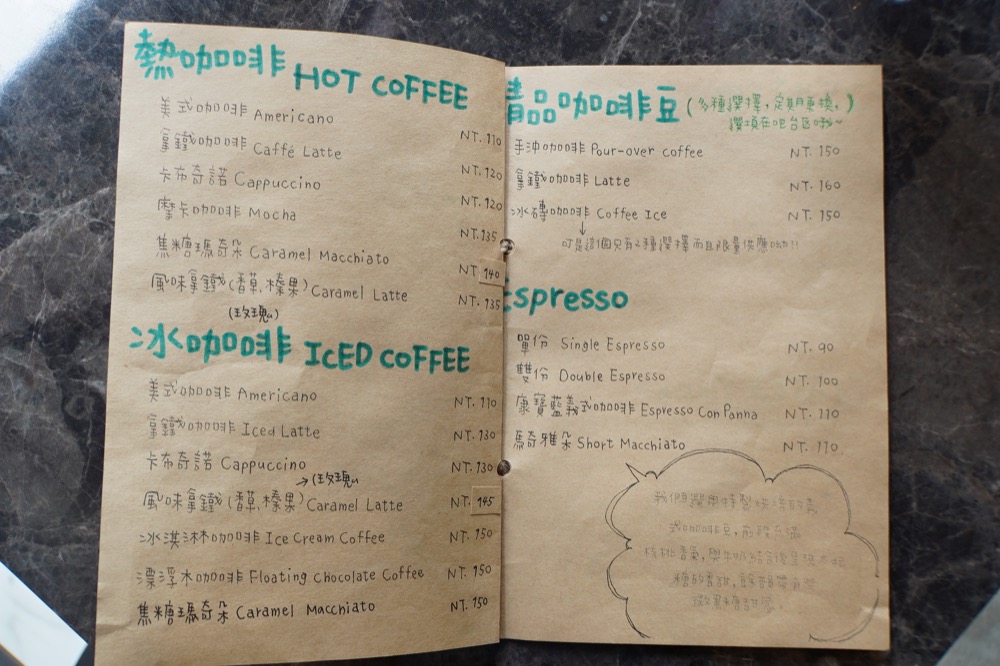 熱咖啡 HOT COFFEE
美式咖啡 Americano NT. 110
拿鐵咖啡 Caffé Latte NT. 120
卡布奇諾 Cappuccino NT. 120
摩卡咖啡 Mocha NT. 135
焦糖瑪奇朵 Caramel Macchiato NT. 140
風味拿鐵(香草.榛果) Caramel Latte NT. 135
(玫瑰)
冰咖啡 ICED COFFEE
美式咖啡 Americano NT. 110
拿鐵咖啡 Iced Latte NT. 130
卡布奇諾 Cappuccino NT. 130
→(玫瑰
風味拿鐵(香草.榛果) Caramel Latte NT. 145
冰淇淋咖啡 Ice Cream Coffee NT. 150
漂浮木咖啡 Floating Chocolate Coffee NT. 150
焦糖瑪奇朵 Caramel Macchiato NT. 150
精品咖啡豆 (多種選擇,定期更換,
選項在吧台區哦~)
手沖咖啡 Pour-over coffee NT. 150
拿鐵咖啡 Latte NT. 160
冰磚咖啡 Coffee Ice NT. 150
↓
可是這個只有2種選擇而且限量供應呦!!
Espresso
單份 Single Espresso NT. 90
雙份 Double Espresso NT. 100
康寶藍義式咖啡 Espresso Con Panna NT. 110
瑪奇雅朵 Short Macchiato NT. 110
我們選用特製烘焙的義
式咖啡豆,前段充滿
核桃香氣,與牛奶結合後呈現
糖的香甜,尾部帶有些
微黑糖甜感.